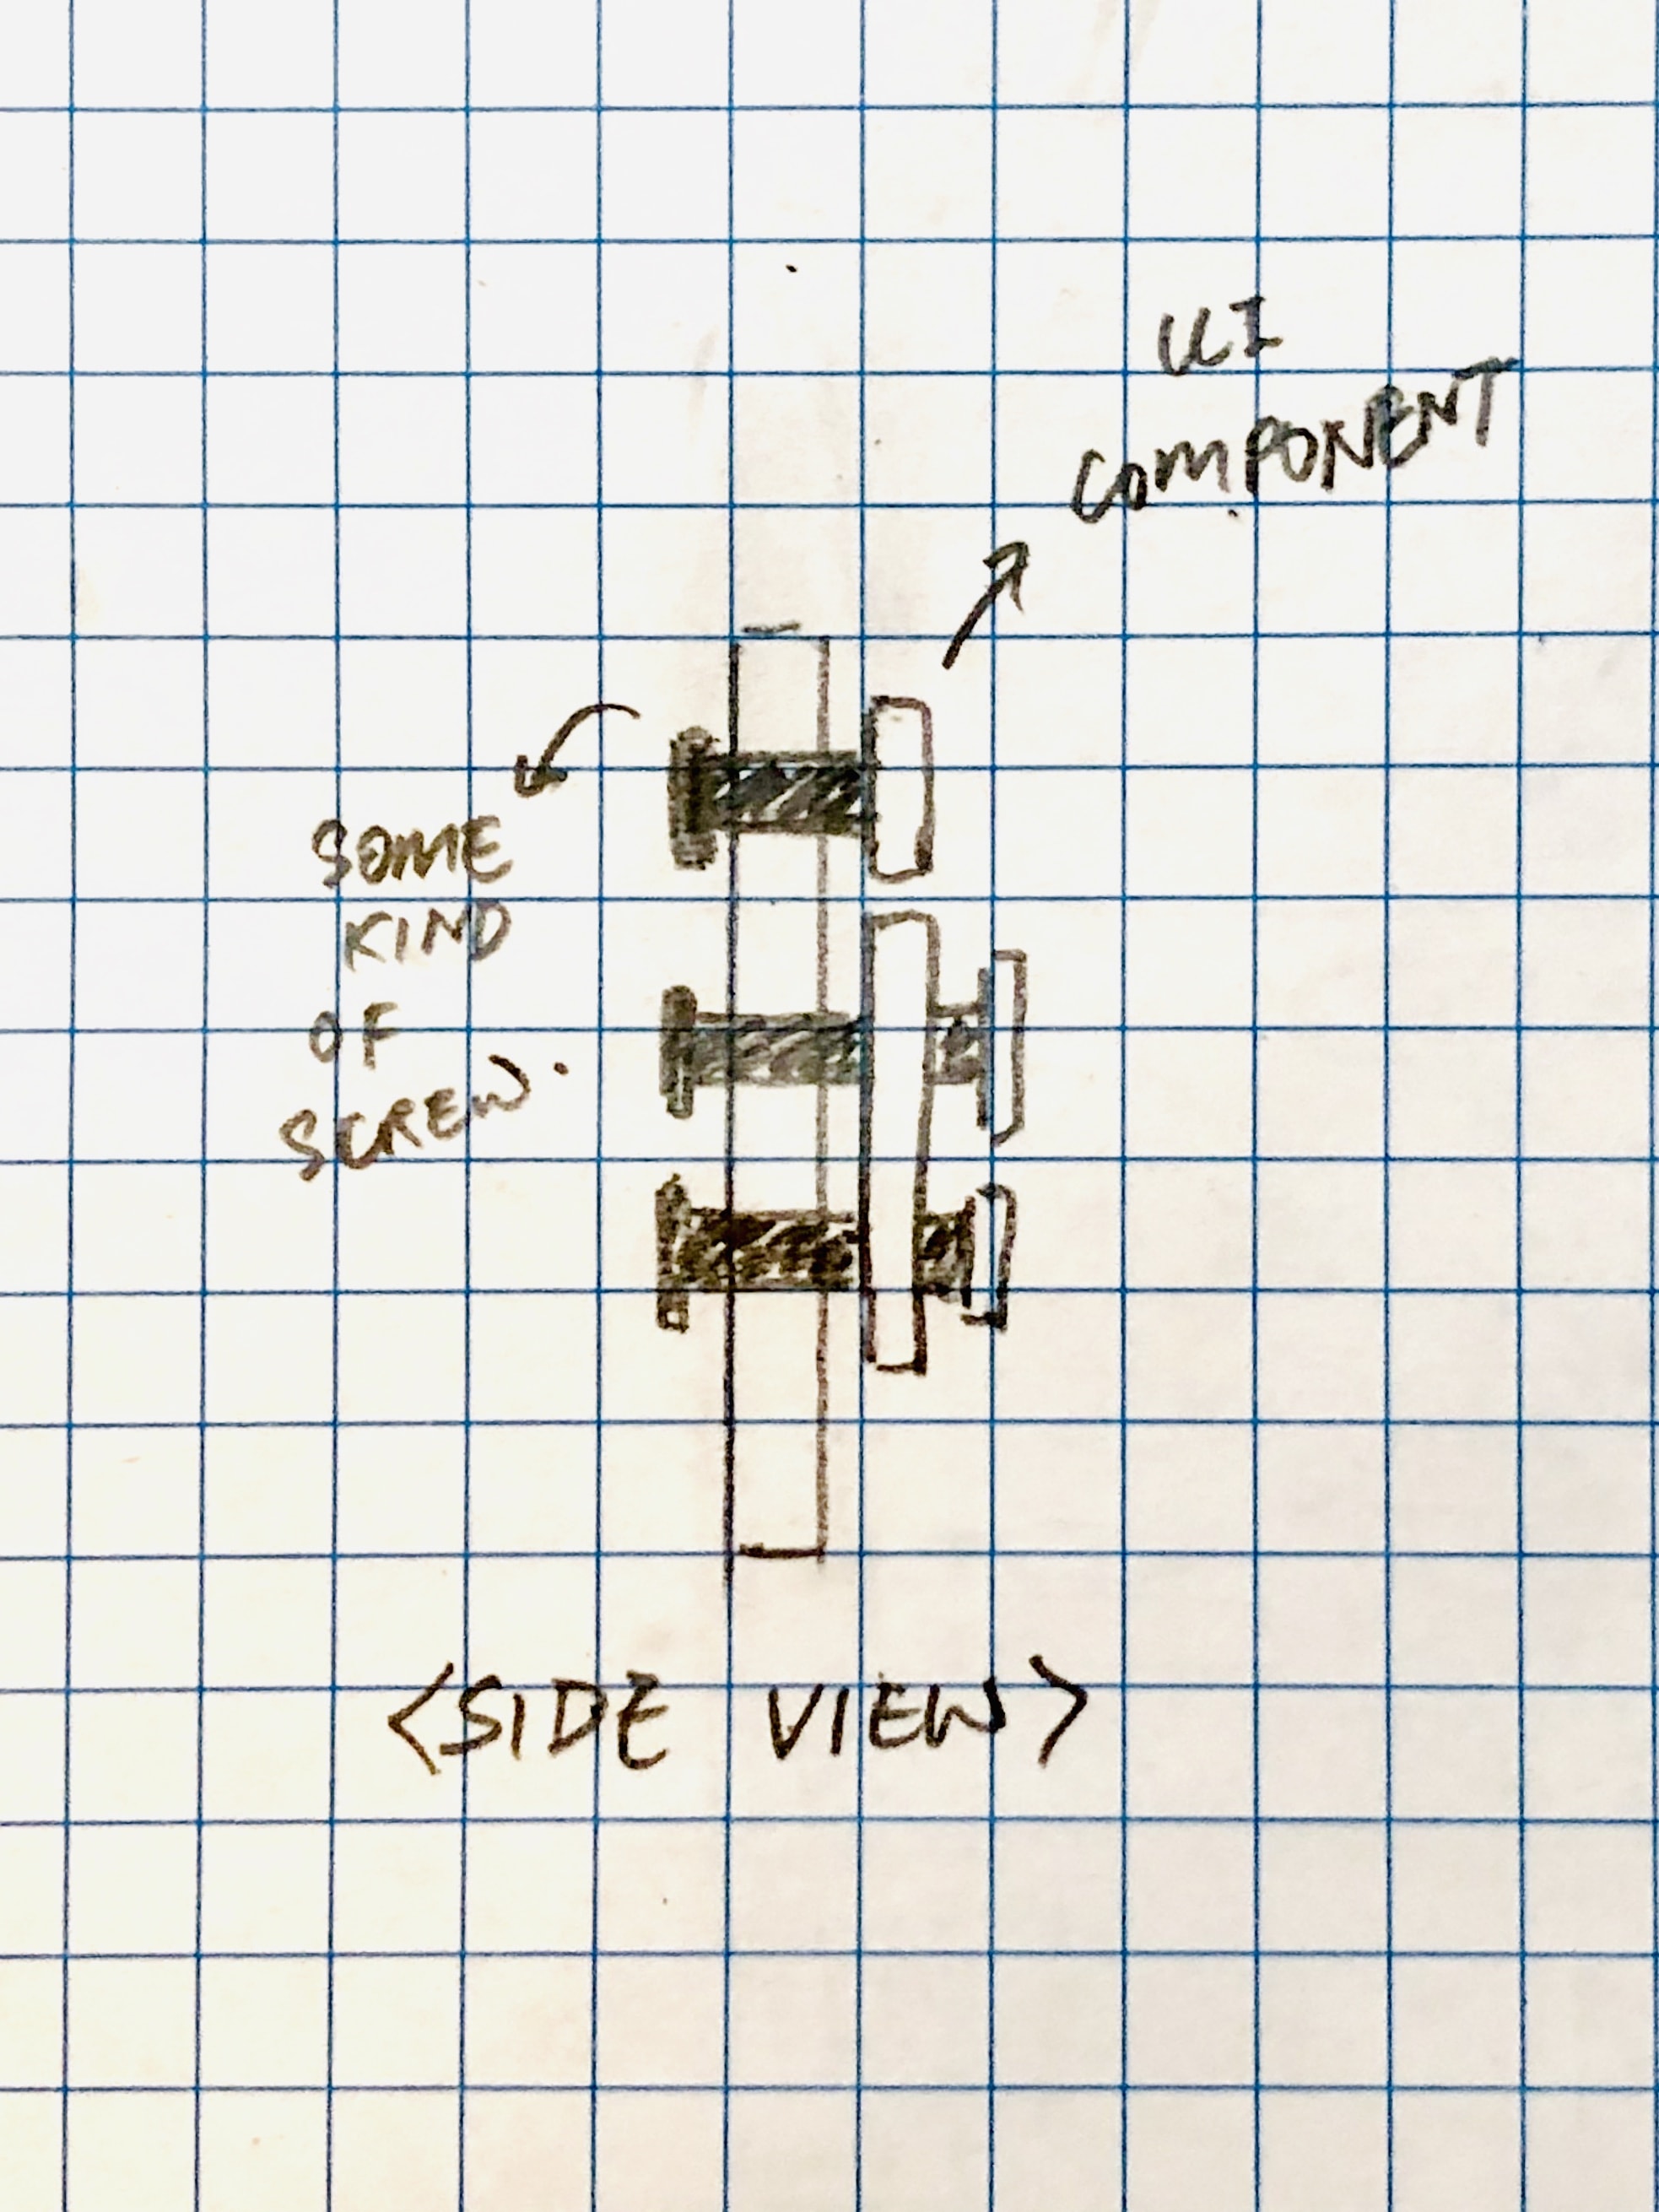 UI
COMPONENT
SOME
KIND
OF
SCREW.
<SIDE VIEW>